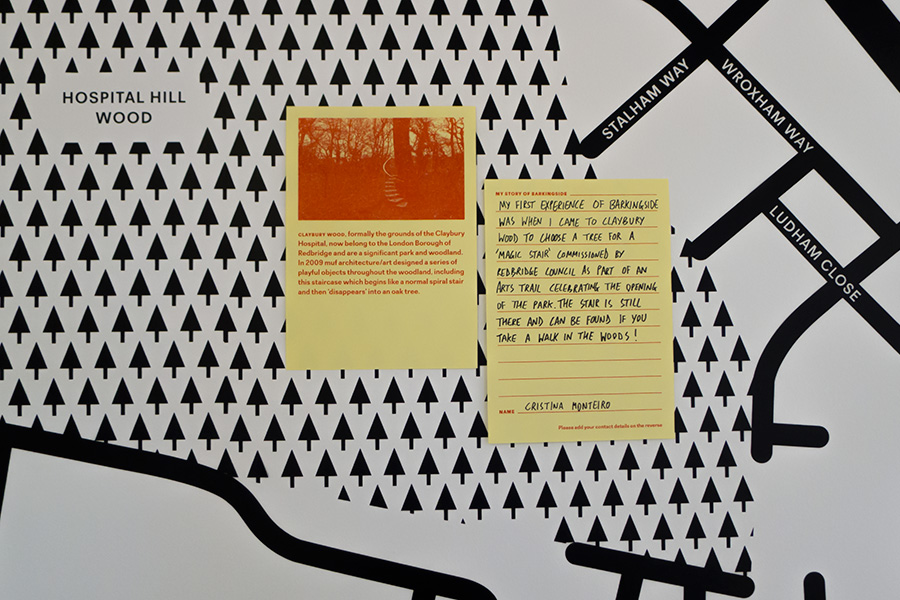 HOSPITAL HILL
WOOD
STALHAM WAY
WROXHAM WAY
LUDHAM CLOSE
CLAYBURY WOOD, formally the grounds of the Claybury
Hospital, now belong to the London Borough of
Redbridge and are a significant park and woodland.
In 2009 muf architecture/art designed a series of
playful objects throughout the woodland, including
this staircase which begins like a normal spiral stair
and then 'disappears' into an oak tree.
MY STORY OF BARKINGSIDE
MY FIRST EXPERIENCE OF BARKINGSIDE
WAS WHEN I CAME TO CLAYBURY
WOOD TO CHOOSE A TREE FOR A
'MAGIC STAIR' COMMISSIONED BY
REDBRIDGE COUNCIL AS PART OF AN
ARTS TRAIL CELEBRATING THE OPENING
OF THE PARK. THE STAIR IS STILL
THERE AND CAN BE FOUND IF YOU
TAKE A WALK IN THE WOODS!
NAME CRISTINA MONTEIRO
Please add your contact details on the reverse